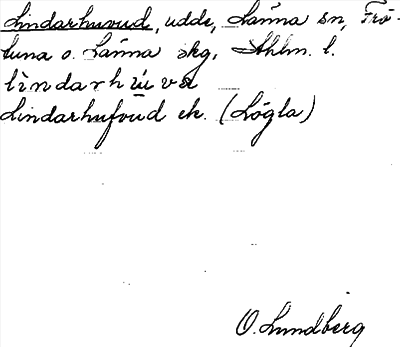 Lindarhuvud, udde, Länna sn, Frö-
tuna o. Länna skg, Sthlm. l.
lìndarhu̇́va
Lindarhufvud ek. (Lögla)
O. Lundberg